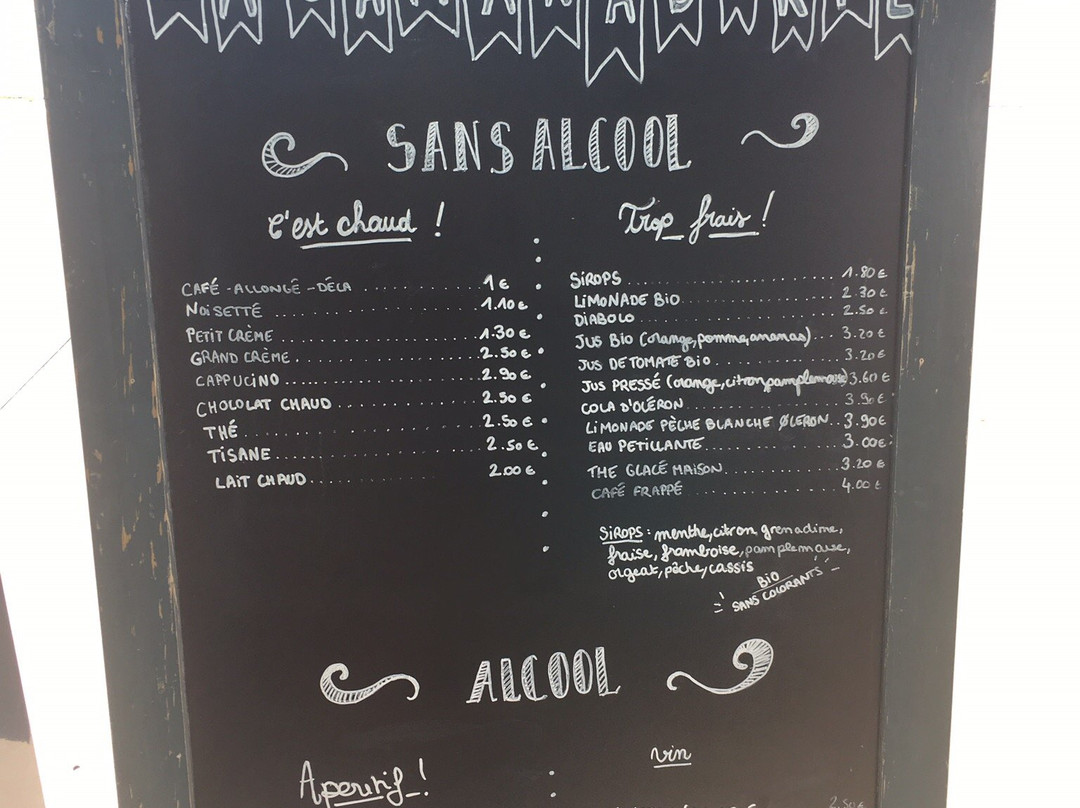 SANS ALCOOL
C'est chaud !
CAFÉ - ALLONGÉ - DÉCA 1 €
NOISETTE 1.10 €
PETIT CRÈME 1.30 €
GRAND CRÈME 2.50 €
CAPPUCINO 2.90 €
CHOLOLAT CHAUD 2.50 €
THÉ 2.50 €
TISANE 2.50 €
LAIT CHAUD 2.00 €
Trop frais !
SIROPS 1.80 €
LIMONADE BIO 2.30 €
DIABOLO 2.50 €
JUS BIO (orange, pomme, ananas) 3.20 €
JUS DE TOMATE BIO 3.20 €
JUS PRESSÉ (orange, citron, pamplemousse) 3.60 €
COLA D'OLÉRON 3.90 €
LIMONADE PÊCHE BLANCHE OLERON 3.90 €
EAU PETILLANTE 3.00 €
THE GLACÉ MAISON 3.20 €
CAFÉ FRAPPÉ 4.00 €
SIROPS : menthe, citron, grenadine,
fraise, framboise, pamplemousse,
orgeat, pêche, cassis
BIO
SANS COLORANTS
ALCOOL
Aperitif !
vin
2.50 €